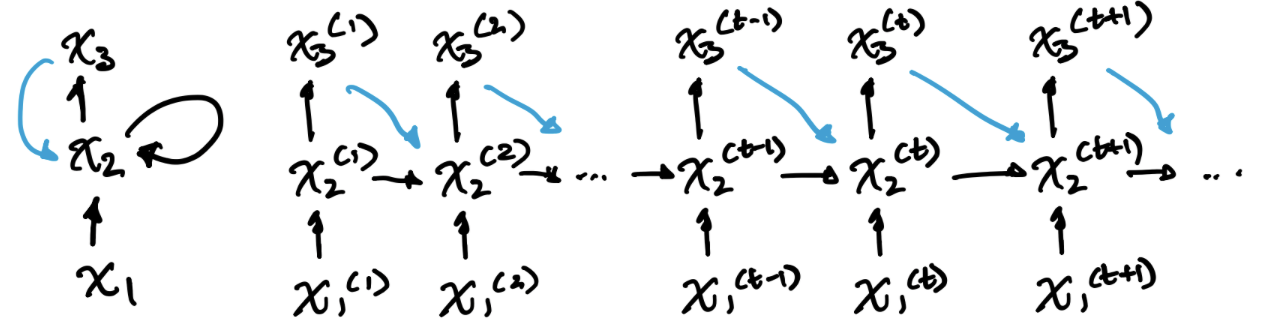 x₃ x₃⁽¹⁾ x₃⁽²⁾ x₃⁽ᵗ⁻¹⁾ x₃⁽ᵗ⁾ x₃⁽ᵗ⁺¹⁾
x₂ x₂⁽¹⁾ x₂⁽²⁾ ... x₂⁽ᵗ⁻¹⁾ x₂⁽ᵗ⁾ x₂⁽ᵗ⁺¹⁾ ...
x₁ x₁⁽¹⁾ x₁⁽²⁾ x₁⁽ᵗ⁻¹⁾ x₁⁽ᵗ⁾ x₁⁽ᵗ⁺¹⁾